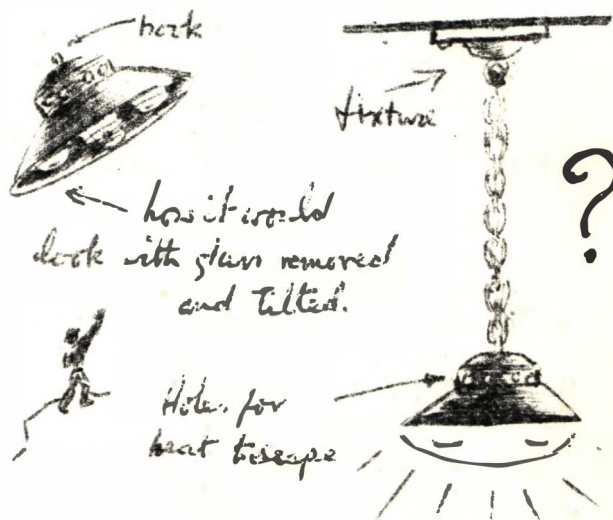 hook
fixture
?
how it would
look with glass removed
and tilted.
Holes for
heat to escape